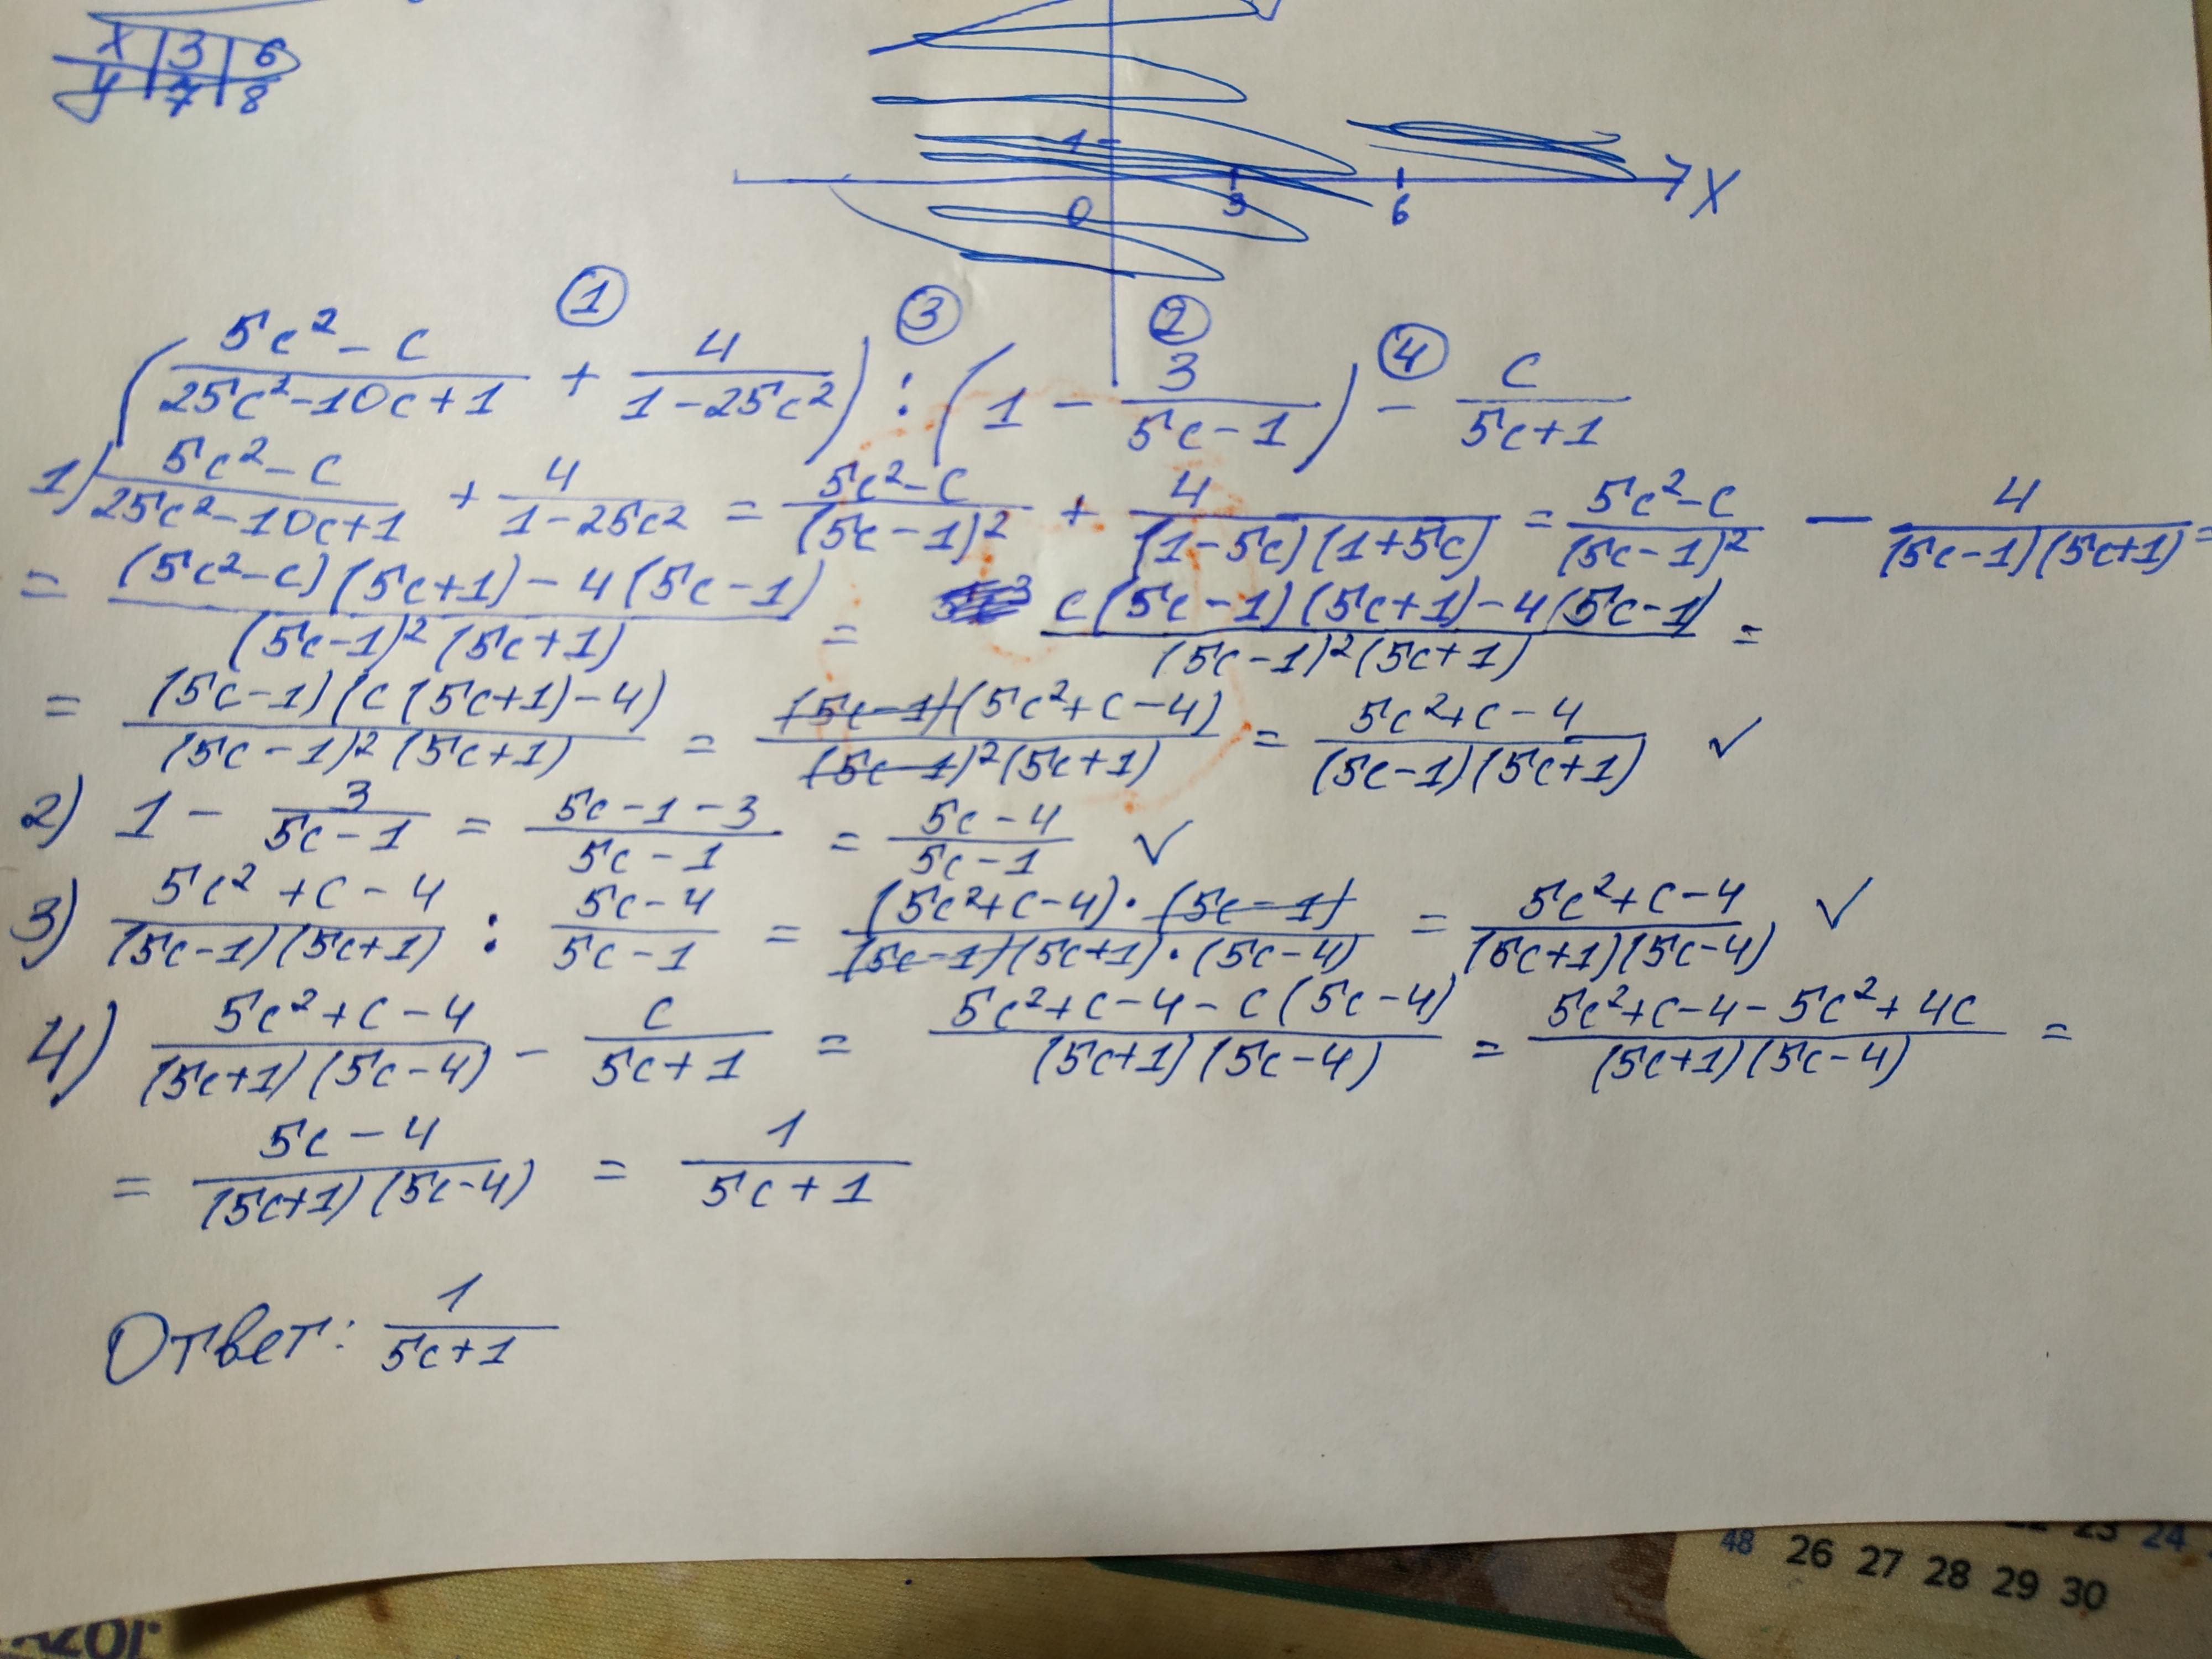 x | 3 | 6
y | 7 | 8
1
0 3 6 X
① ③ ② ④
((5c²-c)/(25c²-10c+1) + 4/(1-25c²)) : (1 - 3/(5c-1)) - c/(5c+1)
1) (5c²-c)/(25c²-10c+1) + 4/(1-25c²) = (5c²-c)/(5c-1)² + 4/((1-5c)(1+5c)) = (5c²-c)/(5c-1)² - 4/((5c-1)(5c+1)) =
= ((5c²-c)(5c+1)-4(5c-1))/((5c-1)²(5c+1)) = (c(5c-1)(5c+1)-4(5c-1))/((5c-1)²(5c+1)) =
= ((5c-1)(c(5c+1)-4))/((5c-1)²(5c+1)) = ((5c-1)(5c²+c-4))/((5c-1)²(5c+1)) = (5c²+c-4)/((5c-1)(5c+1)) ✓
2) 1 - 3/(5c-1) = (5c-1-3)/(5c-1) = (5c-4)/(5c-1) ✓
3) (5c²+c-4)/((5c-1)(5c+1)) : (5c-4)/(5c-1) = ((5c²+c-4)·(5c-1))/((5c-1)(5c+1)·(5c-4)) = (5c²+c-4)/((5c+1)(5c-4)) ✓
4) (5c²+c-4)/((5c+1)(5c-4)) - c/(5c+1) = (5c²+c-4-c(5c-4))/((5c+1)(5c-4)) = (5c²+c-4-5c²+4c)/((5c+1)(5c-4)) =
= (5c-4)/((5c+1)(5c-4)) = 1/(5c+1)
Ответ: 1/(5c+1)
23 24
48 26 27 28 29 30